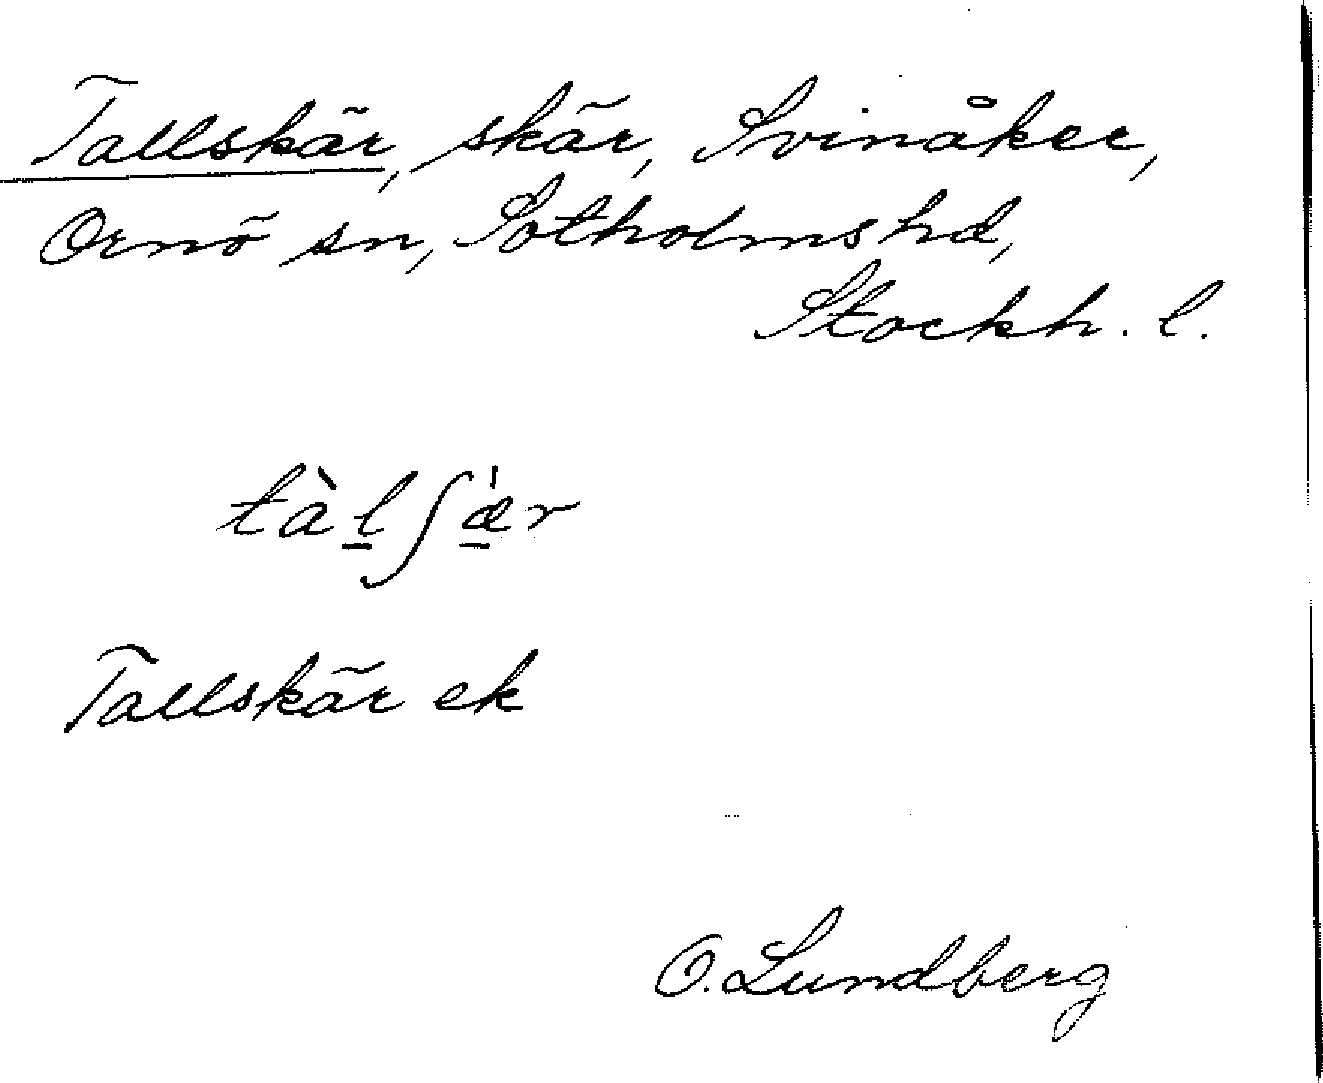 Tallskär, skär, Svinåker,
Ornö sn, Sotholms hd,
Stockh. l.
tàl̲ʃæ̲̍r
Tallskär ek
O. Lundberg